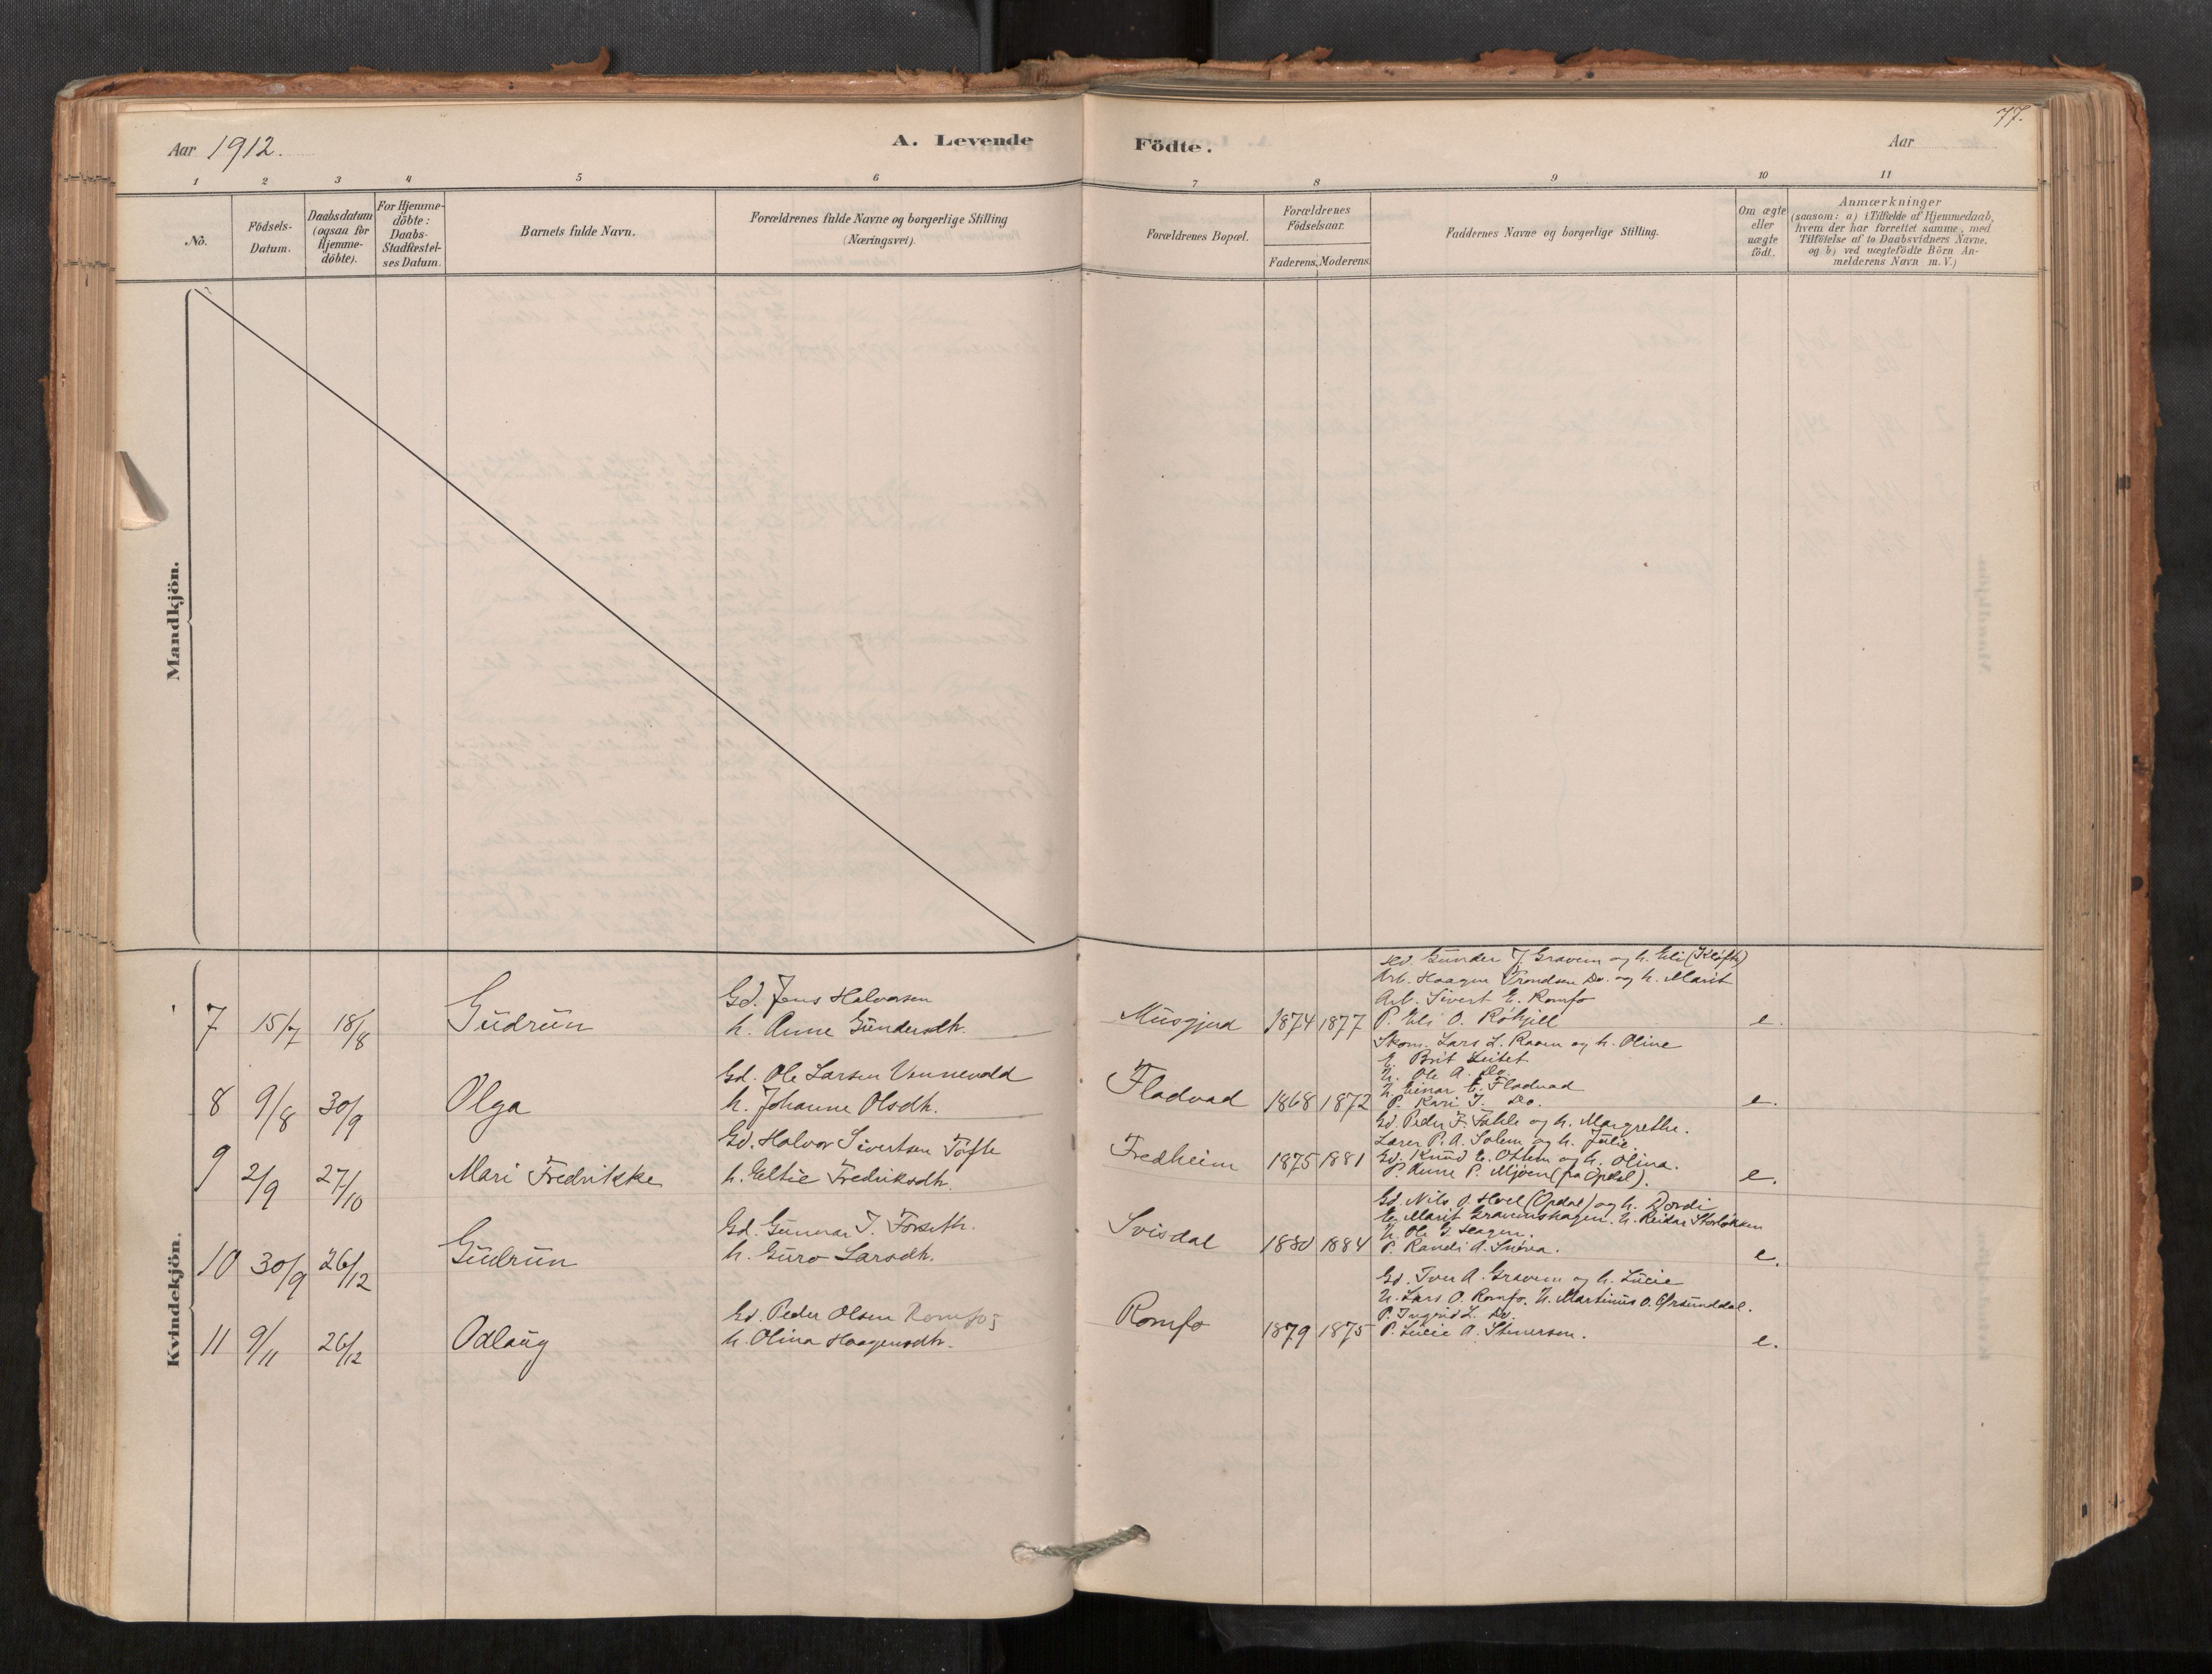 77.
Aar 1912.
A. Levende
Födte.
Aar
1 2 3 4 5 6 7 8 9 10 11
No.
Födsels-Datum.
Daabsdatum (ogsaa for Hjemme-döbte).
For Hjemme-döbte: Daabs-Stadfæstel-ses Datum.
Barnets fulde Navn.
Forældrenes fulde Navne og borgerlige Stilling (Næringsvei).
Forældrenes Bopæl.
Forældrenes Födselsaar.
Faderens. Moderens.
Faddernes Navne og borgerlige Stilling.
Om ægte eller uægte födt.
Anmærkninger
(saasom: a) i Tilfælde af Hjemmedaab,
hvem der har forrettet samme, med
Tilföielse af to Daabsvidners Navne,
og b) ved uægtefödte Börn An-
melderens Navn m. V.)
Mandkjön.
Kvindekjön.
7 15/7 18/8 Gudrun
Gd. Jens Halvorsen
h. Anne Gundersdtr.
Musgjerd 1874 1877
Gd. Gunder J. Gravem og h. Eli (Kløfte)
Arb. Haagen Trondsen Do. og h. Marit
Arb. Sivert E. Romfo
P. Eli O. Røhjell
e.
8 9/8 30/9 Olga
Gd. Ole Larsen Vennevold
h. Johanne Olsdtr.
Fladvad 1868 1872
Skom. Lars L. Raaen og h. Oline
E. Brit Leitet
U. Ole A. Do.
U. Einar E. Fladvad
P. Kari J. Do.
e.
9 2/9 27/10 Mari Fredrikke
Gd. Halvor Sivertsen Tofte
h. Eltie Fredriksdtr.
Fredheim 1875 1881
Gd. Peder F. Fahle og h. Margrethe.
Lærer P. A. Solem og h. Julie.
Gd. Knud E. Ottem og h. Olina.
P. Anne P. Mjøen (fra Opdal).
e.
10 30/9 26/12 Gudrun
Gd. Gunnar J. Forseth.
h. Guro Larsdtr.
Svisdal 1880 1884
Gd. Nils O. Hoel (Opdal) og h. Dordi
E. Marit Gravemshagen. U. Reidar Storløkken
U. Ole G. Hagen.
P. Randi A. Snøva.
e.
11 9/11 26/12 Odlaug
Gd. Peder Olsen Romfo
h. Olina Haagensdtr.
Romfo 1879 1875
Gd. Iver A. Gravem og h. Lucie
U. Lars O. Romfo. U. Martinus O. Ørsunddal.
P. Ingrid L. Do.
P. Lucie A. Stenersen.
e.